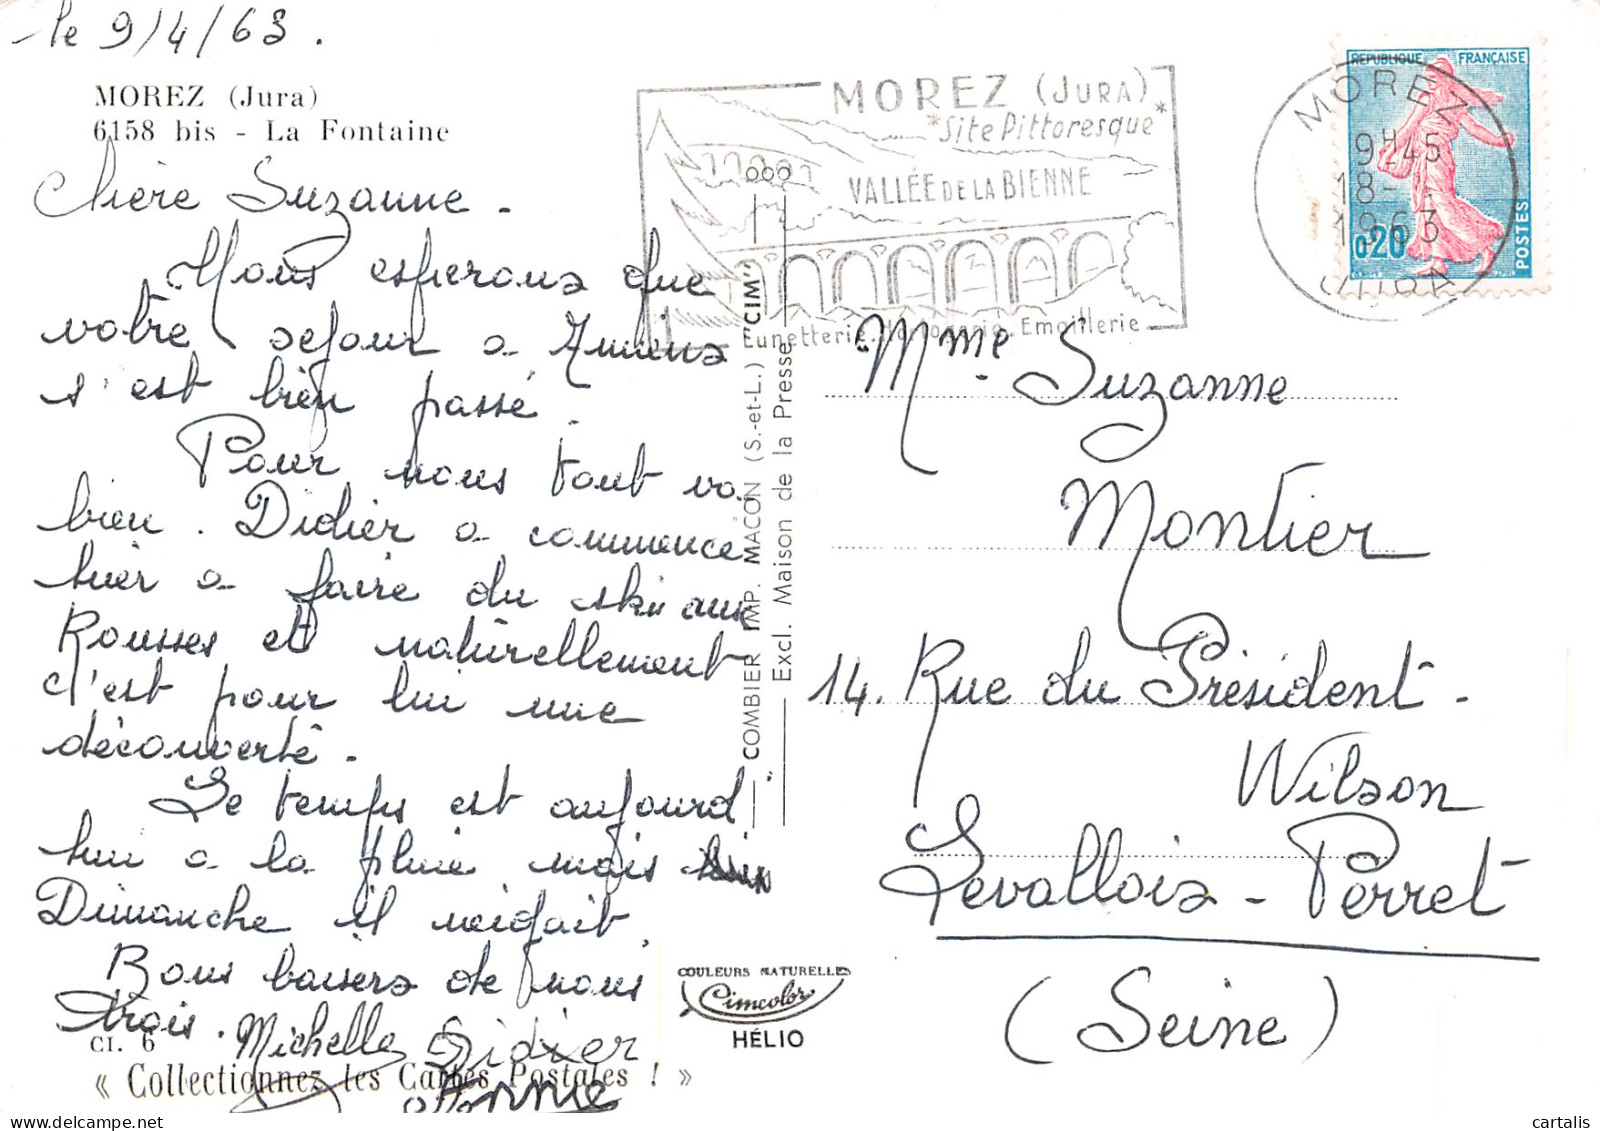 le 9/4/63.
MOREZ (Jura)
6158 bis - La Fontaine
Chère Suzanne.
Nous esperons que
votre sejour a Amiens
s'est bien passé.
Pour nous tout va
bien. Didier a commence
hier a faire du ski aux
Rousses et naturellement
c'est pour lui une
découverte.
Le temps est aujourd
hui a la pluie mais
Dimanche il
Bons baisers de nous
trois. Michelle Didier
CI. 6
« Collectionnez les Cartes Postales ! »
Annie
MOREZ (JURA)
*Site Pittoresque*
VALLÉE DE LA BIENNE
Lunetterie. Horlogerie. Emaillerie
COMBIER IMP. MACON (S.-et-L.) "CIM"
Excl. Maison de la Presse
COULEURS NATURELLES
Cimcolor
HÉLIO
RÉPUBLIQUE FRANÇAISE
0,20
POSTES
MOREZ
9H45
18-
1963
JURA
Mme Suzanne
Montier
14. Rue du Président-
Wilson
Levallois-Perret
(Seine)
cartalis